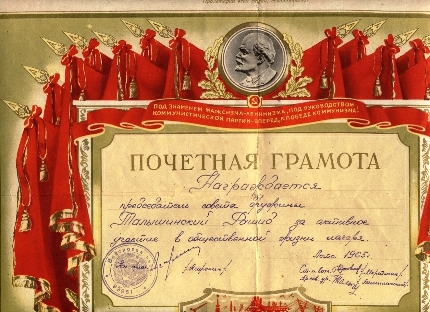 Пролетарии всех стран, соединяйтесь!
ПОД ЗНАМЕНЕМ МАРКСИЗМА-ЛЕНИНИЗМА, ПОД РУКОВОДСТВОМ
КОММУНИСТИЧЕСКОЙ ПАРТИИ - ВПЕРЕД, К ПОБЕДЕ КОММУНИЗМА!
ПОЧЕТНАЯ ГРАМОТА
Награждается
председатель совета дружины
Талышинский Рашид за активное
участие в общественной жизни лагеря.
1965г.